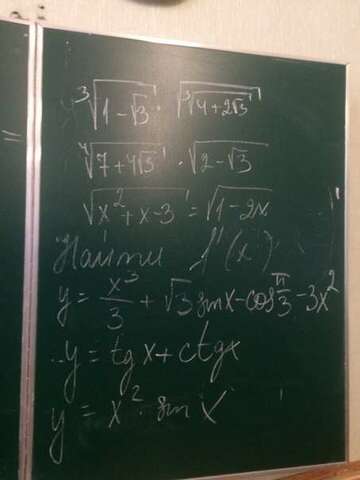 ∛(1-√3) · √(∛(4+2√3))
∜(7+4√3) · √(2-√3)
√(x²+x-3) = √(1-2x)
Найти f'(x)
y = x³/3 + √3 sin x - cos π/3 - 3x²
y = tg x + ctg x
y = x² · sin x
=